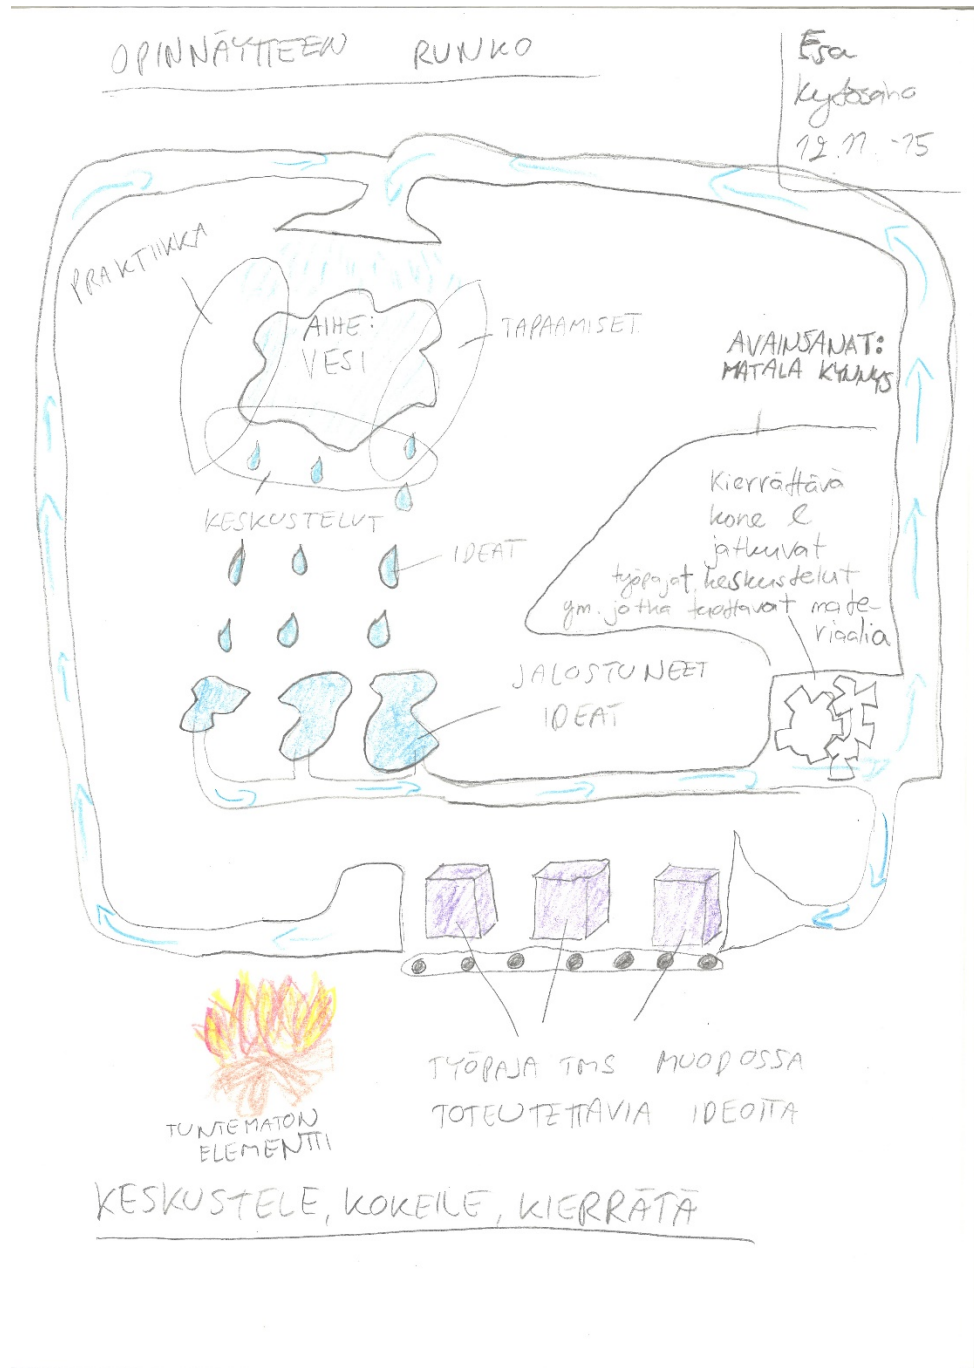 OPINNÄYTTEEN RUNKO
Esa
12.11.-15
PRAKTIIKKA
AIHE:
VESI
TAPAAMISET
AVAINSANAT:
MATALA KYNNYS
KESKUSTELUT
IDEAT
Kierrättävä
kone
jatkuvat
työpajat, keskustelut
ym. jotka tuottavat mate-
riaalia
JALOSTUNEET
IDEAT
TYÖPAJA TMS MUODOSSA
TOTEUTETTAVIA IDEOITA
TUNTEMATON
ELEMENTTI
KESKUSTELE, KOKEILE, KIERRÄTÄ